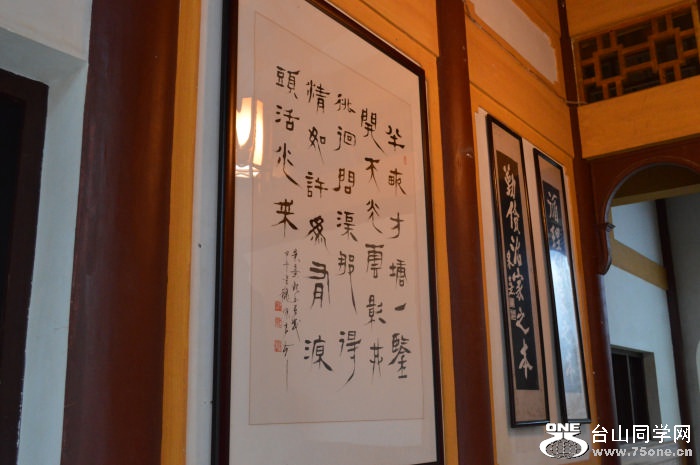 半畝方塘一鑒
開天光雲影共
徘徊問渠那得
清如許為有源
頭活水來
勤儉治家之本
ONE
台山同学网
www.75one.cn